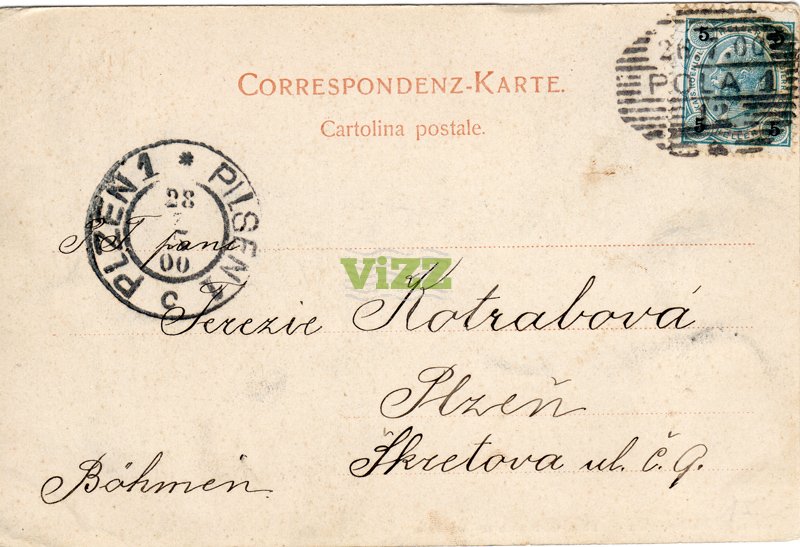 CORRESPONDENZ-KARTE.
Cartolina postale.
5 5
26 7.00
POLA 1
5 5
PLZEN 1 * PILSEN 1
28
7
00
P. T. paní
ViZZ
Terezie Kotrabová
Plzeň
Škretova ul. č. 9.
Böhmen